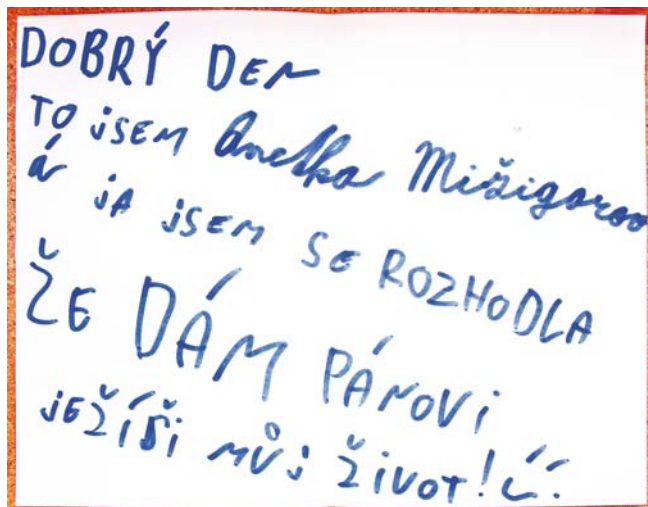 DOBRÝ DEN
TO jSEM Anetka Mižigarov
á jA jSEM SE ROZHODLA
ŽE DÁM PÁNOVi
jEŽÍŠi MŮj ŽiVOT!